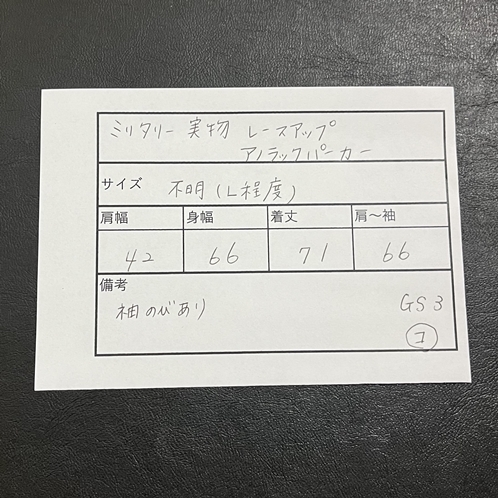 ミリタリー 実物 レースアップ
アノラックパーカー
サイズ 不明(L程度)
肩幅 身幅 着丈 肩～袖
42 66 71 66
備考
袖のびあり GS3
コ